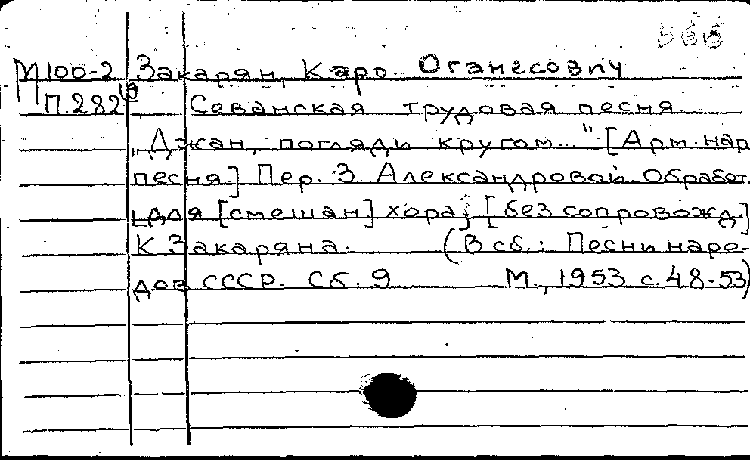 М100-2 Закарян, Каро Оганесович
П.282 Севанская трудовая песня
„Джан, погляди кругом..." [Арм. нар
песня] Пер. З Александровой Обработ.
для [смешан] хора; [без сопровожд.]
К Закаряна. (В сб.: Песни наро-
дов СССР. Сб. 9 М., 1953 с. 48-53)